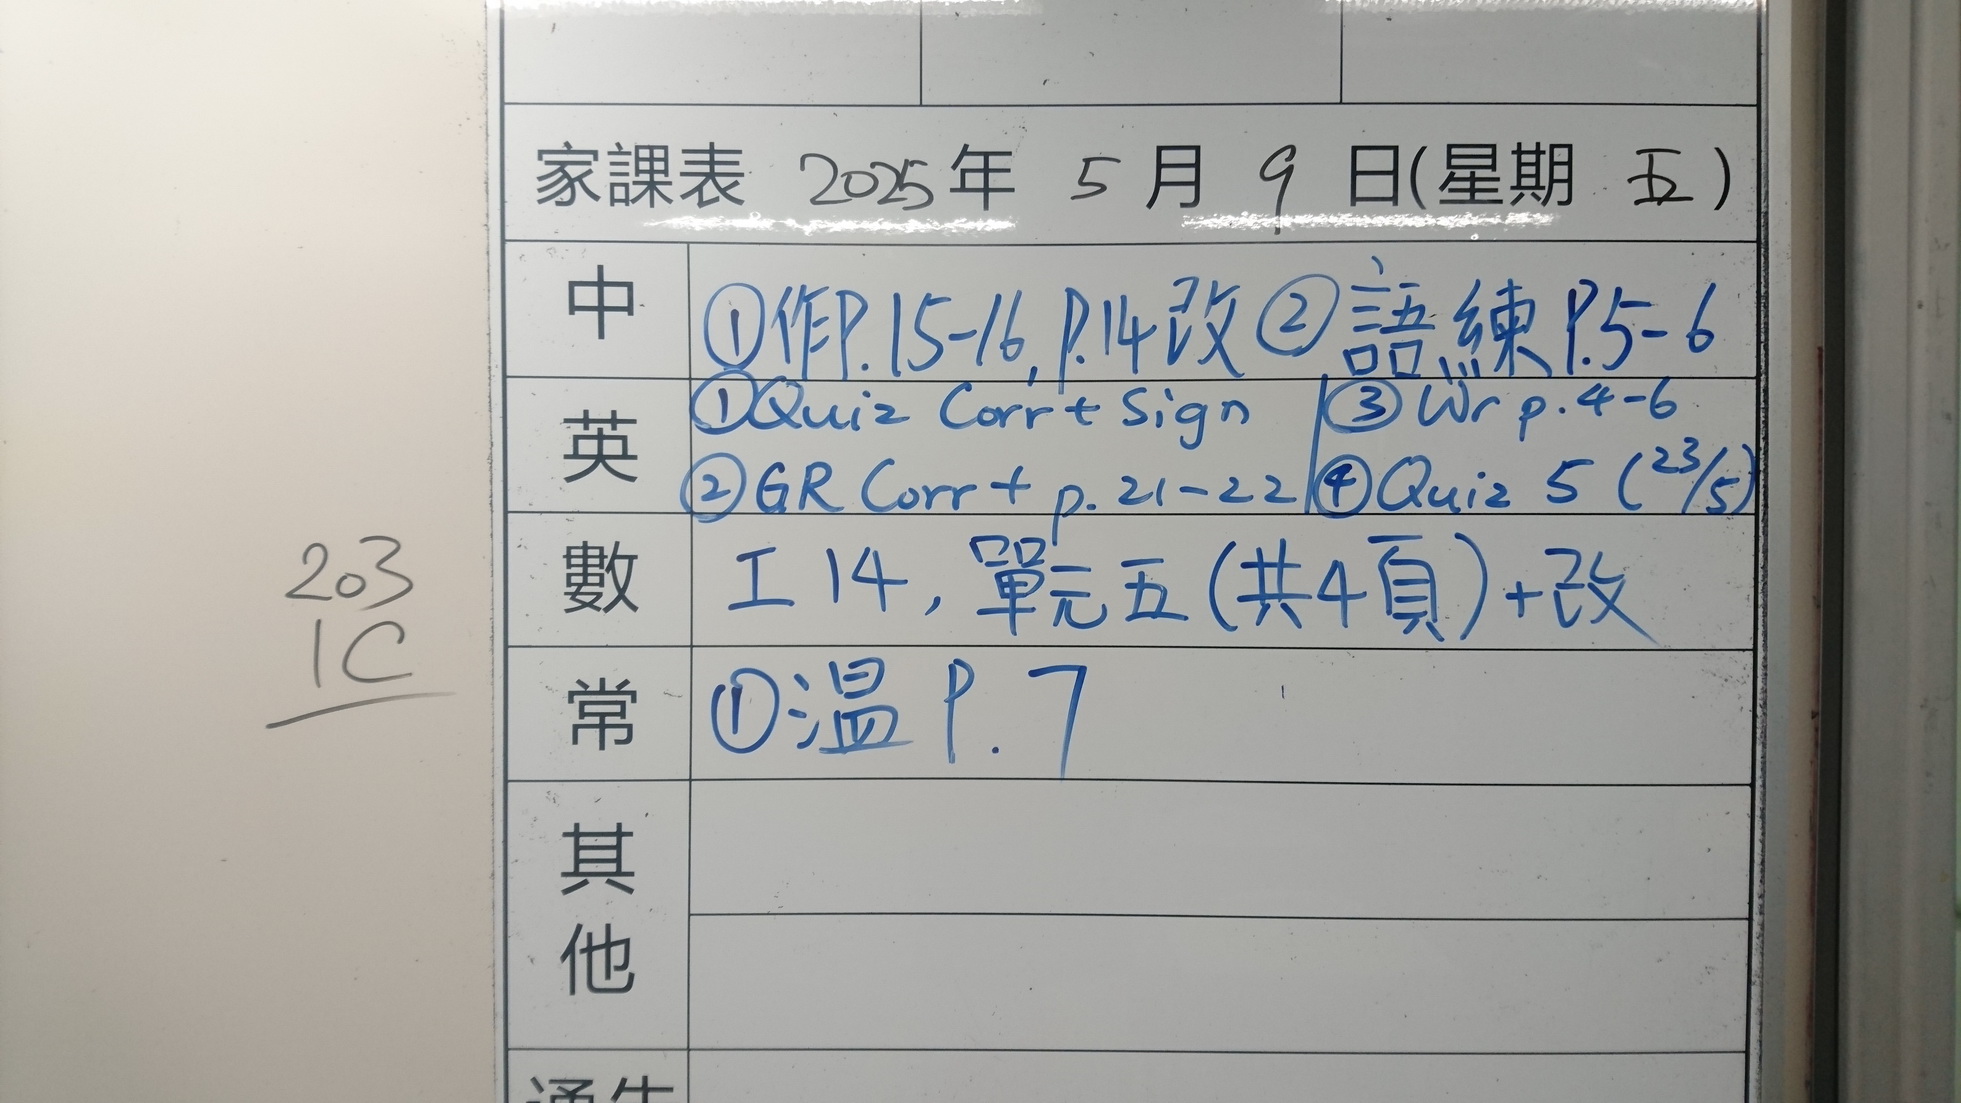 家課表 2025年 5月 9日(星期 五)
中 ①作P.15-16, P.14改 ②語練P.5-6
英 ①Quiz Corr + Sign ③Wr p.4-6
②GR Corr + p.21-22 ④Quiz 5 (23/5)
數 工14, 單元五(共4頁)+改
常 ①温 P.7
其他
通告
203
1C